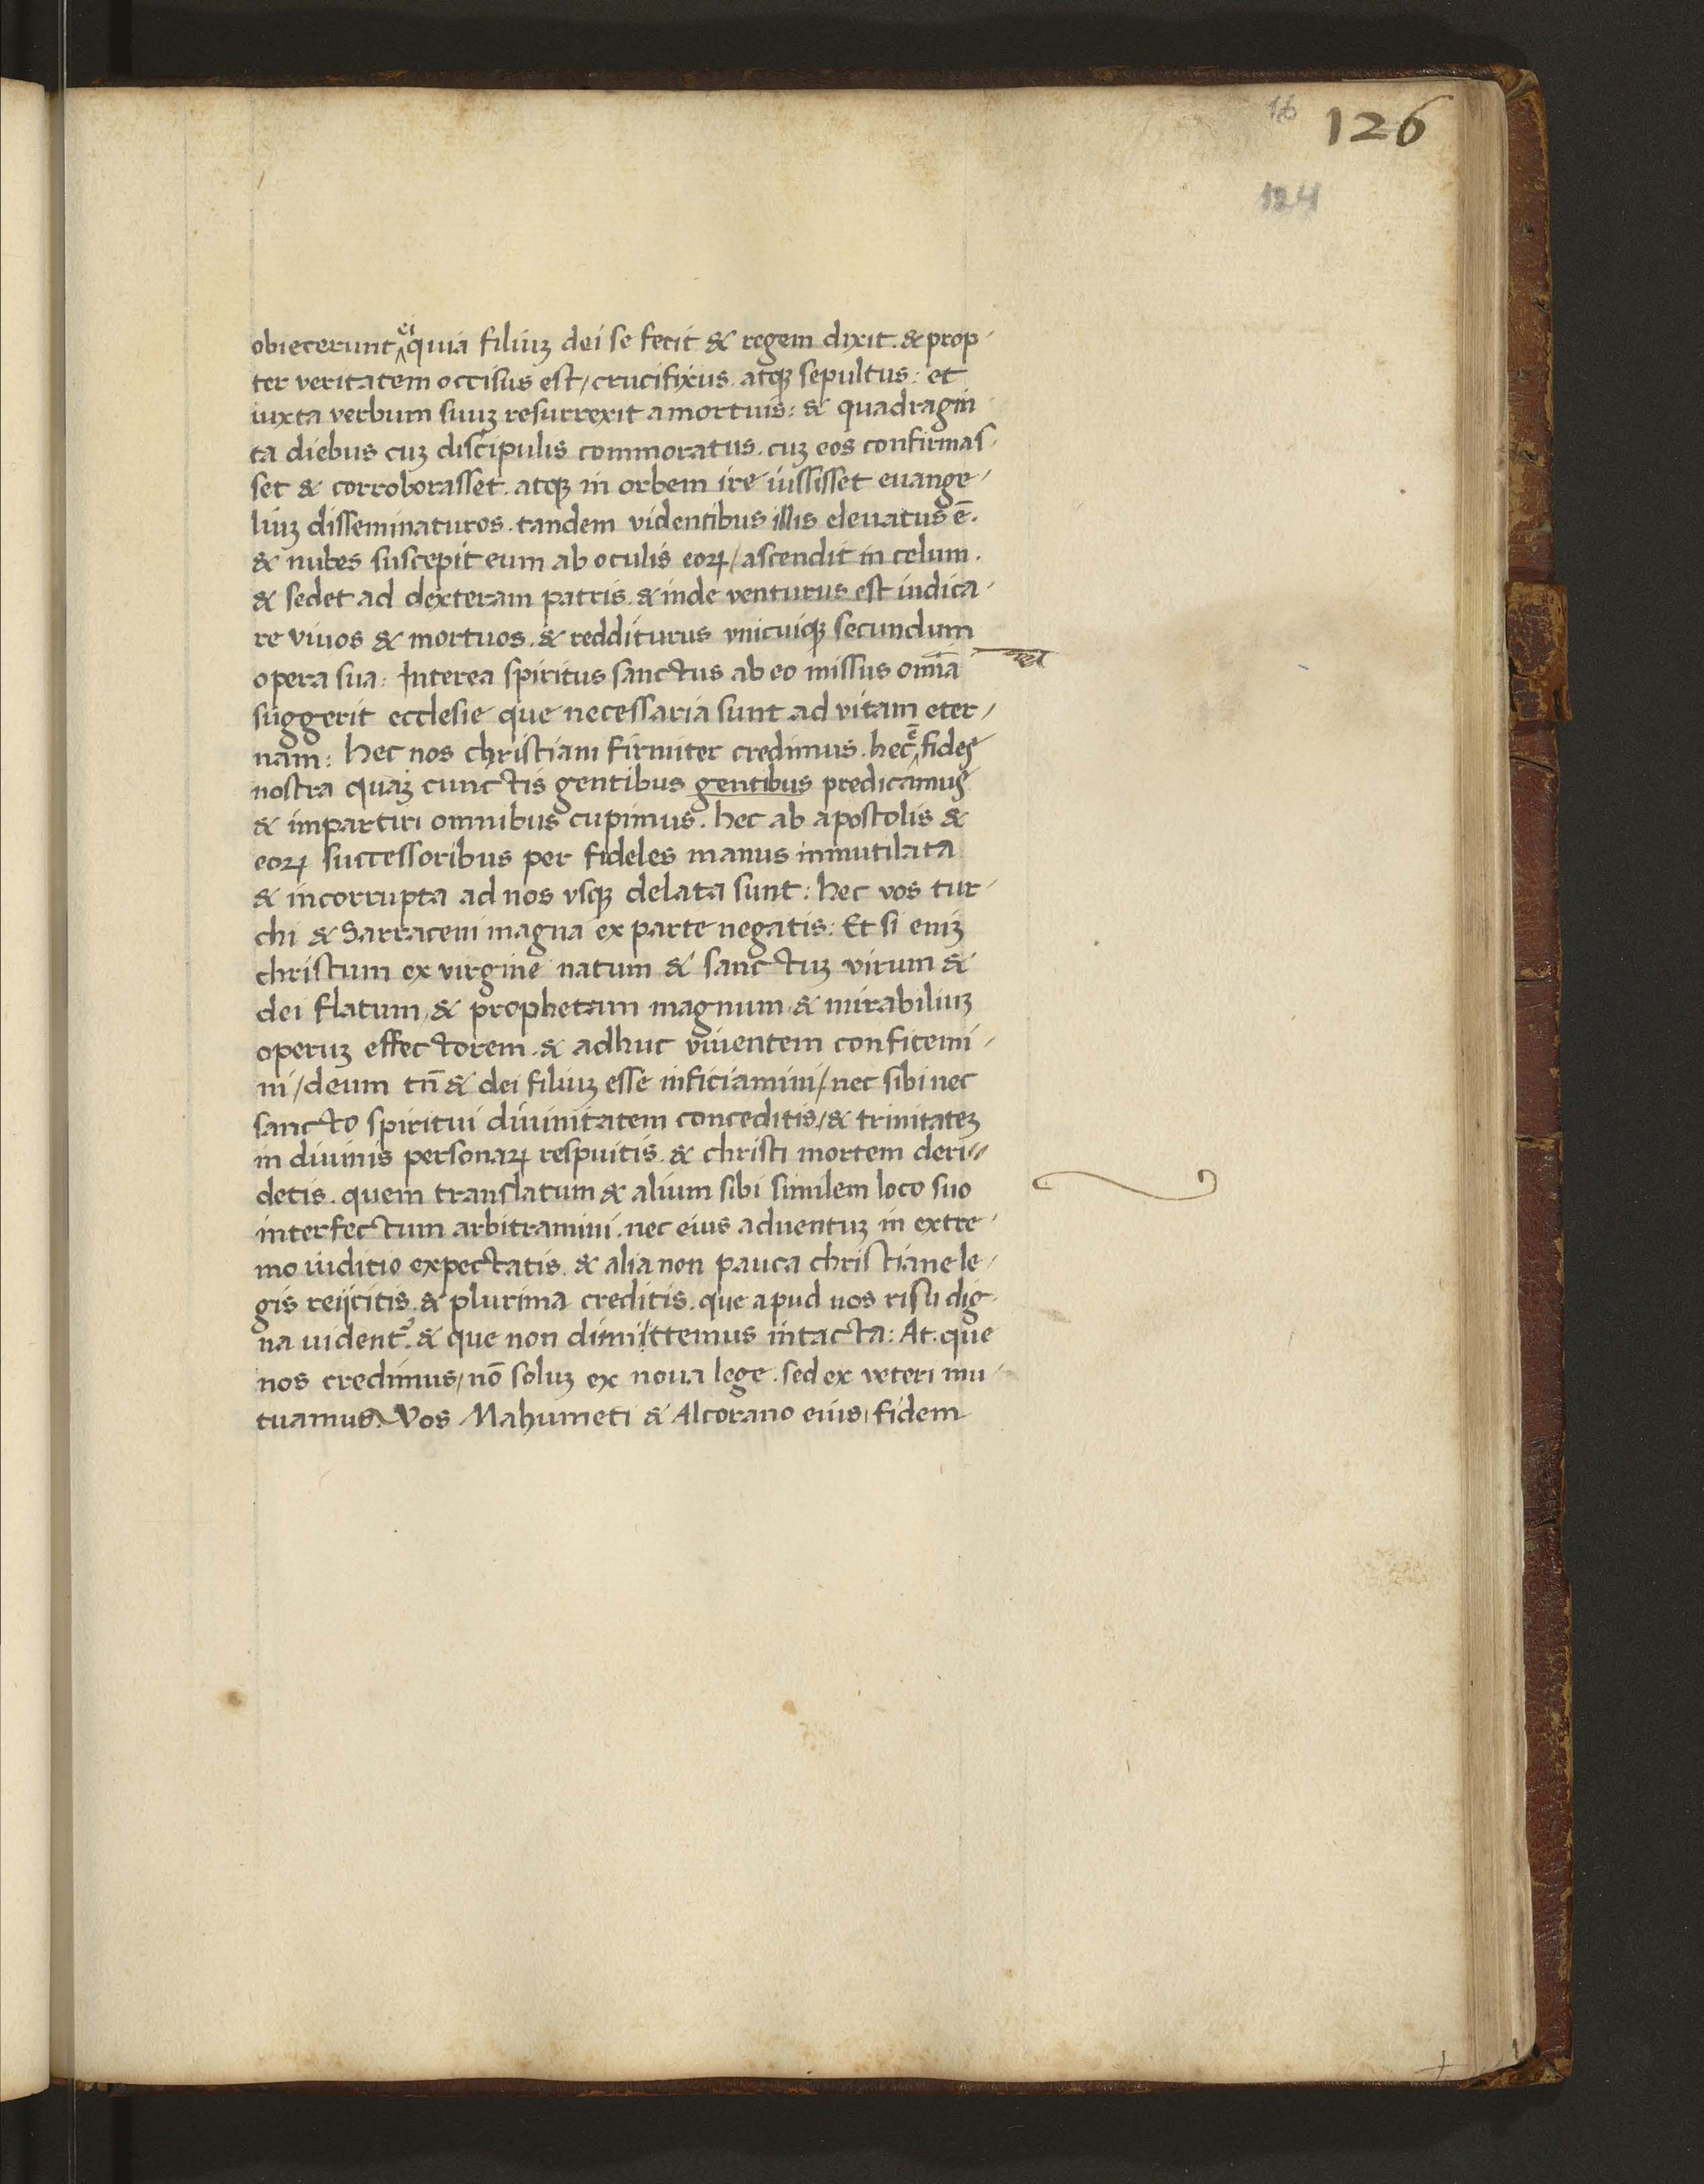 16 126
124
obiecerunt ei quia filiuʒ dei se fecit & regem dixit. & prop-
ter veritatem occisus est/crucifixus. atqʒ sepultus: et
iuxta verbum suuʒ resurrexit a mortuis: & quadragin
ta diebus cuʒ discipulis commoratus. cuʒ eos confirmas-
set & corroborasset. atqʒ in orbem ire iussisset euange-
liuʒ disseminaturos. tandem videntibus illis eleuatus ē.
& nubes suscepit eum ab oculis eoꝝ/ascendit in celum.
& sedet ad dexteram patris. & inde venturus est iudica-
re viuos & mortuos. & redditurus vnicuiqʒ secundum
opera sua: Interea spiritus sanctus ab eo missus om̄ia
suggerit ecclesie que necessaria sunt ad vitam eter-
nam: hec nos christiani firmiter credimus. hec ē fides
nostra quaʒ cunctis gentibus gentibus predicamus
& impartiri omnibus cupimus. hec ab apostolis &
eoꝝ successoribus per fideles manus inmutilata
& incorrupta ad nos vsqʒ delata sunt: hec vos tur-
chi & Sarraceni magna ex parte negatis: Et si eniʒ
christum ex virgine natum & sanctuʒ virum &
dei flatum, & prophetam magnum, & mirabiliuʒ
operuʒ effectorem. & adhuc viuentem confitemi-
ni/deum tn̄ & dei filiuʒ esse inficiamini/nec sibi nec
sancto spiritui diuinitatem conceditis/& trinitateʒ
in diuinis personaꝝ respuitis. & christi mortem deri-
detis. quem translatum & alium sibi similem loco suo
interfectum arbitramini. nec eius aduentuʒ in extre-
mo iuditio expectatis. & alia non pauca christiane le-
gis reijcitis. & plurima creditis. que apud uos risu dig-
na uident᷒. & que non dimittemus intacta: At. que
nos credimus/nō soluʒ ex noua lege. sed ex veteri mu-
tuamus. Vos Mahumeti & Alcorano eius, fidem